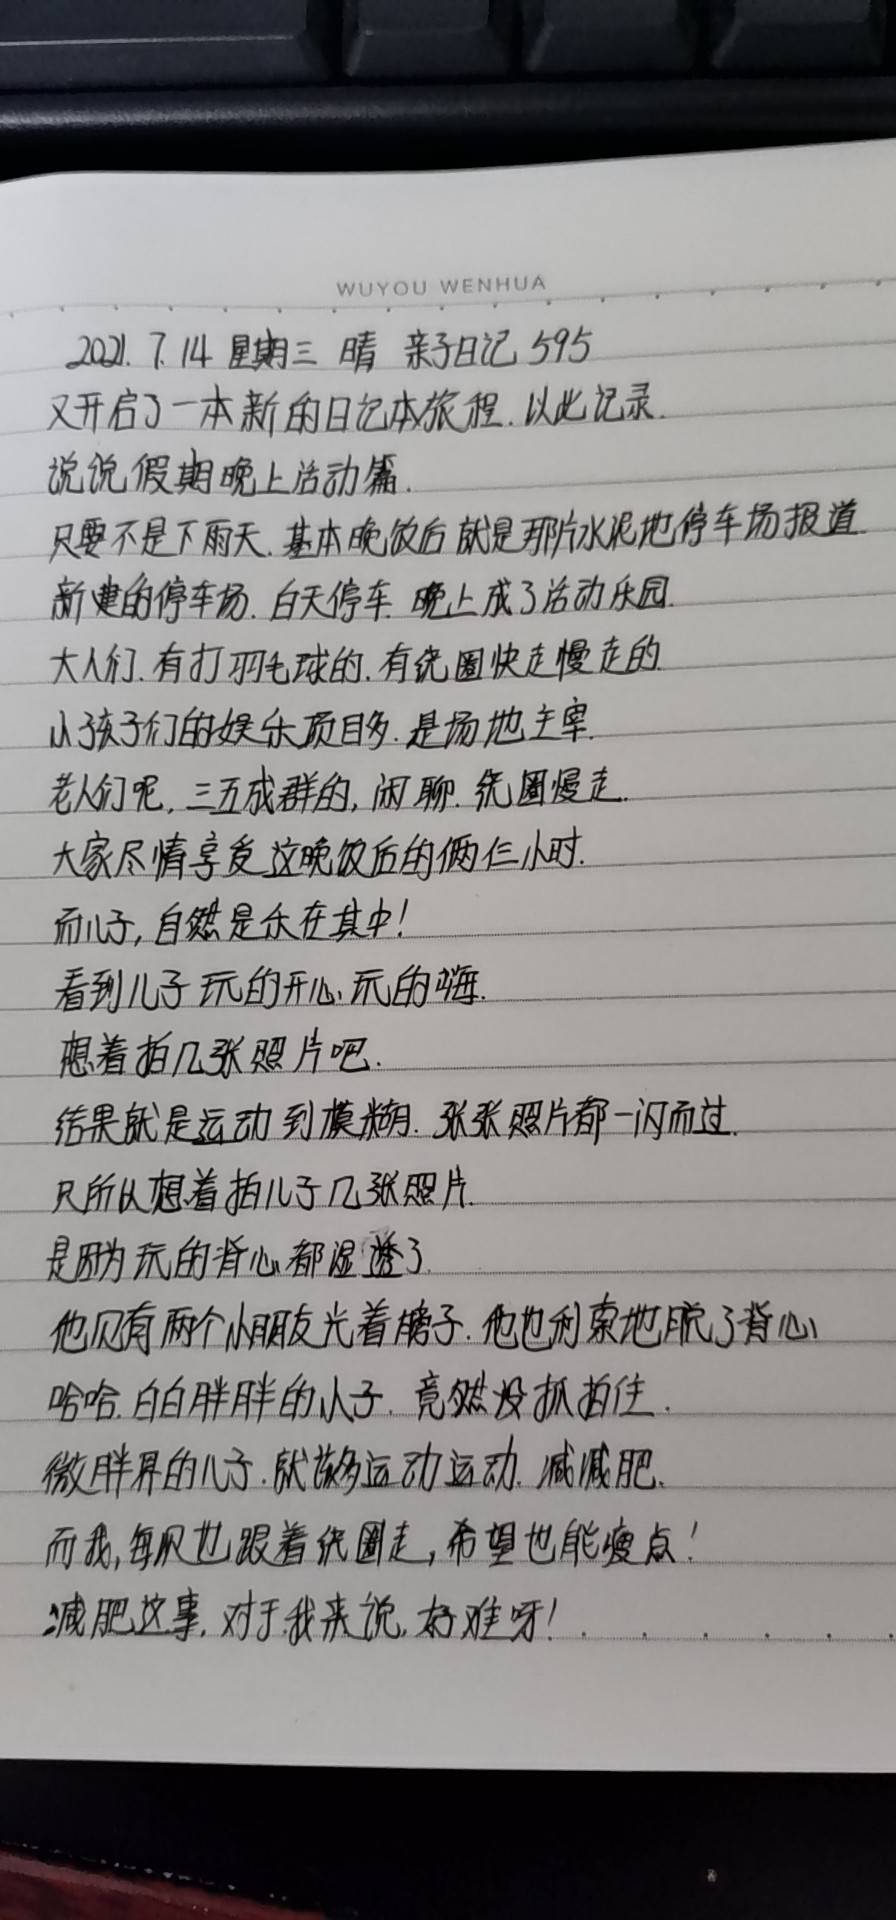 WUYOU WENHUA
2021.7.14 星期三 晴 亲子日记 595
又开启了一本新的日记本旅程.以此记录.
说说假期晚上活动篇.
只要不是下雨天.基本晚饭后就是那片水泥地停车场报道
新建的停车场.白天停车.晚上成了活动乐园.
大人们.有打羽毛球的.有绕圈快走慢走的
小孩子们的娱乐项目多.是场地主宰.
老人们呢,三五成群的,闲聊.绕圈慢走.
大家尽情享受这晚饭后的俩仨小时.
而儿子,自然是乐在其中!
看到儿子玩的开心、玩的嗨.
想着拍几张照片吧.
结果就是运动到模糊.张张照片都一闪而过.
只所以想着拍儿子几张照片.
是因为玩的背心都湿透了.
他见有两个小朋友光着膀子.他也利索地脱了背心
哈哈.白白胖胖的儿子.竟然没抓拍住.
微胖界的儿子.就该多运动运动.减减肥.
而我,每次也跟着绕圈走,希望也能瘦点!
减肥这事.对于我来说.好难呀!